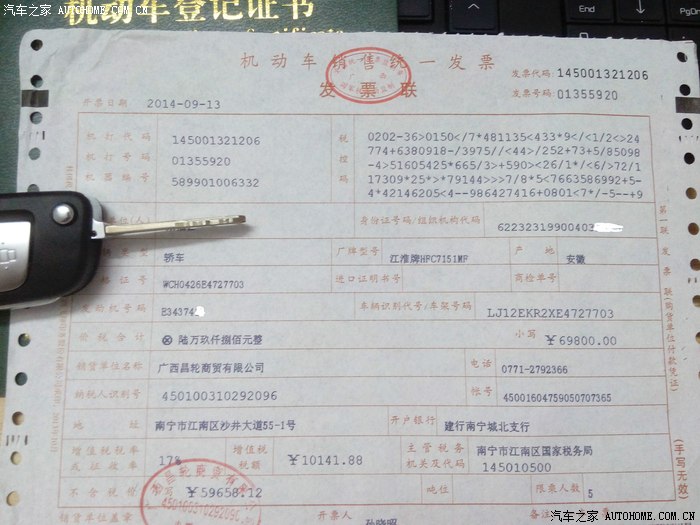 汽车之家 AUTOHOME.COM.CN
机动车登记证书
汽车之家 AUTOHOME.COM.CN
PgDn
机动车销售统一发票
发票联
发票代码:145001321206
发票号码:01355920
开票日期 2014-09-13
机打代码 145001321206
机打号码 01355920
机器编号 589901006332
税控码
0202-36>0150</7*481135<433*9</<1/2<>24
774+6380918-/3975//<44>/252+73+5/85098
-4>51605425*665/3>+590><26/1*/<6/>72/1
17309*25*>*79144>>>7/8*5<7663586992+5-
4*42146205<4--986427416+0801<7*/-5--+9
单位(人) 身份证号码/组织机构代码 62232319900403
类型 轿车 厂牌型号 江淮牌HFC7151MF 产地 安徽
格证号 WCH0426E4727703 进口证明书号 商检单号
发动机号码 E34374 车辆识别代号/车架号码 LJ12EKR2XE4727703
价税合计 ⊗ 陆万玖仟捌佰元整 小写 ￥69800.00
销货单位名称 广西昌轮商贸有限公司 电话 0771-2792366
纳税人识别号 450100310292096 帐号 45001604759050707365
地址 南宁市江南区沙井大道55-1号 开户银行 建行南宁城北支行
增值税税率或征收率 17% 增值税税额 ￥10141.88 主管税务机关及代码 南宁市江南区国家税务局 145010500
不含税价 小写 ￥59658.12 吨位 限乘人数 5
销货单位盖章 开票人
第一联 发票联(购货单位付款凭证)
(手写无效)
汽车之家 AUTOHOME.COM.CN